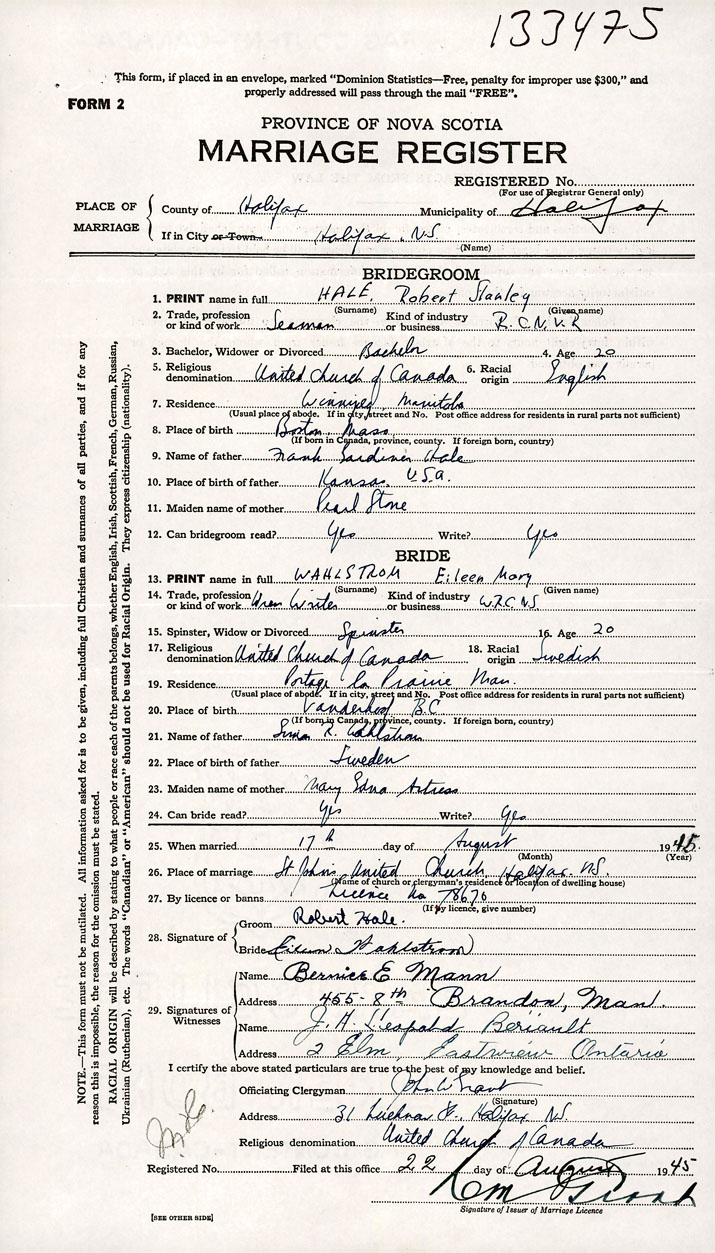 133475
This form, if placed in an envelope, marked "Dominion Statistics—Free, penalty for improper use $300," and
properly addressed will pass through the mail "FREE".
FORM 2
PROVINCE OF NOVA SCOTIA
MARRIAGE REGISTER
REGISTERED No.
(For use of Registrar General only)
PLACE OF MARRIAGE
County of Halifax Municipality of Halifax
If in City or Town Halifax, N.S.
(Name)
BRIDEGROOM
1. PRINT name in full HALE, Robert Stanley
(Surname) (Given name)
2. Trade, profession or kind of work Seaman Kind of industry or business R.C.N.V.R
3. Bachelor, Widower or Divorced Bachelor 4. Age 20
5. Religious denomination United Church of Canada 6. Racial origin English
7. Residence Winnipeg, Manitoba
(Usual place of abode. If in city, street and No. Post office address for residents in rural parts not sufficient)
8. Place of birth Boston, Mass
(If born in Canada, province, county. If foreign born, country)
9. Name of father Frank Gardiner Hale
10. Place of birth of father Kansas, U.S.A.
11. Maiden name of mother Pearl Stone
12. Can bridegroom read? Yes Write? Yes
BRIDE
13. PRINT name in full WAHLSTROM Eileen Mary
(Surname) (Given name)
14. Trade, profession or kind of work Wren Writer Kind of industry or business W.R.C.N.S
15. Spinster, Widow or Divorced Spinster 16. Age 20
17. Religious denomination United Church of Canada 18. Racial origin Swedish
19. Residence Portage la Prairie Man.
(Usual place of abode. If in city, street and No. Post office address for residents in rural parts not sufficient)
20. Place of birth Vanderhoof B.C
(If born in Canada, province, county. If foreign born, country)
21. Name of father R. Wahlstrom
22. Place of birth of father Sweden
23. Maiden name of mother Mary Edna
24. Can bride read? Yes Write? Yes
25. When married 17th day of August 1945.
(Month) (Year)
26. Place of marriage St. Johns United Church, Halifax. N.S.
(Name of church or clergyman's residence or location of dwelling house)
27. By licence or banns Licence No 78670
(If by licence, give number)
28. Signature of
Groom Robert Hale.
Bride Eileen Wahlstrom
29. Signatures of Witnesses
Name Bernice E Mann
Address 455-8th Brandon, Man
Name J. H. Leopold Beriault
Address 2 Elm, Eastview Ontario
I certify the above stated particulars are true to the best of my knowledge and belief.
Officiating Clergyman John W Grant
(Signature)
Address 31 St., Halifax N.S
Religious denomination United Church of Canada
Registered No. Filed at this office 22 day of August 1945
Signature of Issuer of Marriage Licence
[SEE OTHER SIDE]
NOTE.—This form must not be mutilated. All information asked for is to be given, including full Christian and surnames of all parties, and if for any
reason this is impossible, the reason for the omission must be stated.
RACIAL ORIGIN will be described by stating to what people or race each of the parents belongs, whether English, Irish, Scottish, French, German, Russian,
Ukrainian (Ruthenian), etc. The words "Canadian" or "American" should not be used for Racial Origin. They express citizenship (nationality).